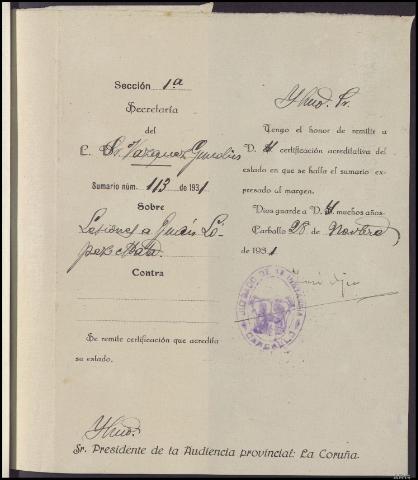 Sección 1ª
Secretaría
del
L. Sr. Vazquez
Sumario núm. 113 de 1931
Sobre
Lesiones a Juan Lo-
pez
Contra
Se remite certificación que acredita
su estado.
Ilmo. Sr.
Tengo el honor de remitir a
V. I. certificación acreditativa del
estado en que se halla el sumario ex-
presado al margen.
Dios guarde a V. I. muchos años.
Carballo 28 de Novbre
de 1931
JUZGADO DE INSTRUCCION
CARBALLO
Ilmo.
Sr. Presidente de la Audiencia provincial: La Coruña.